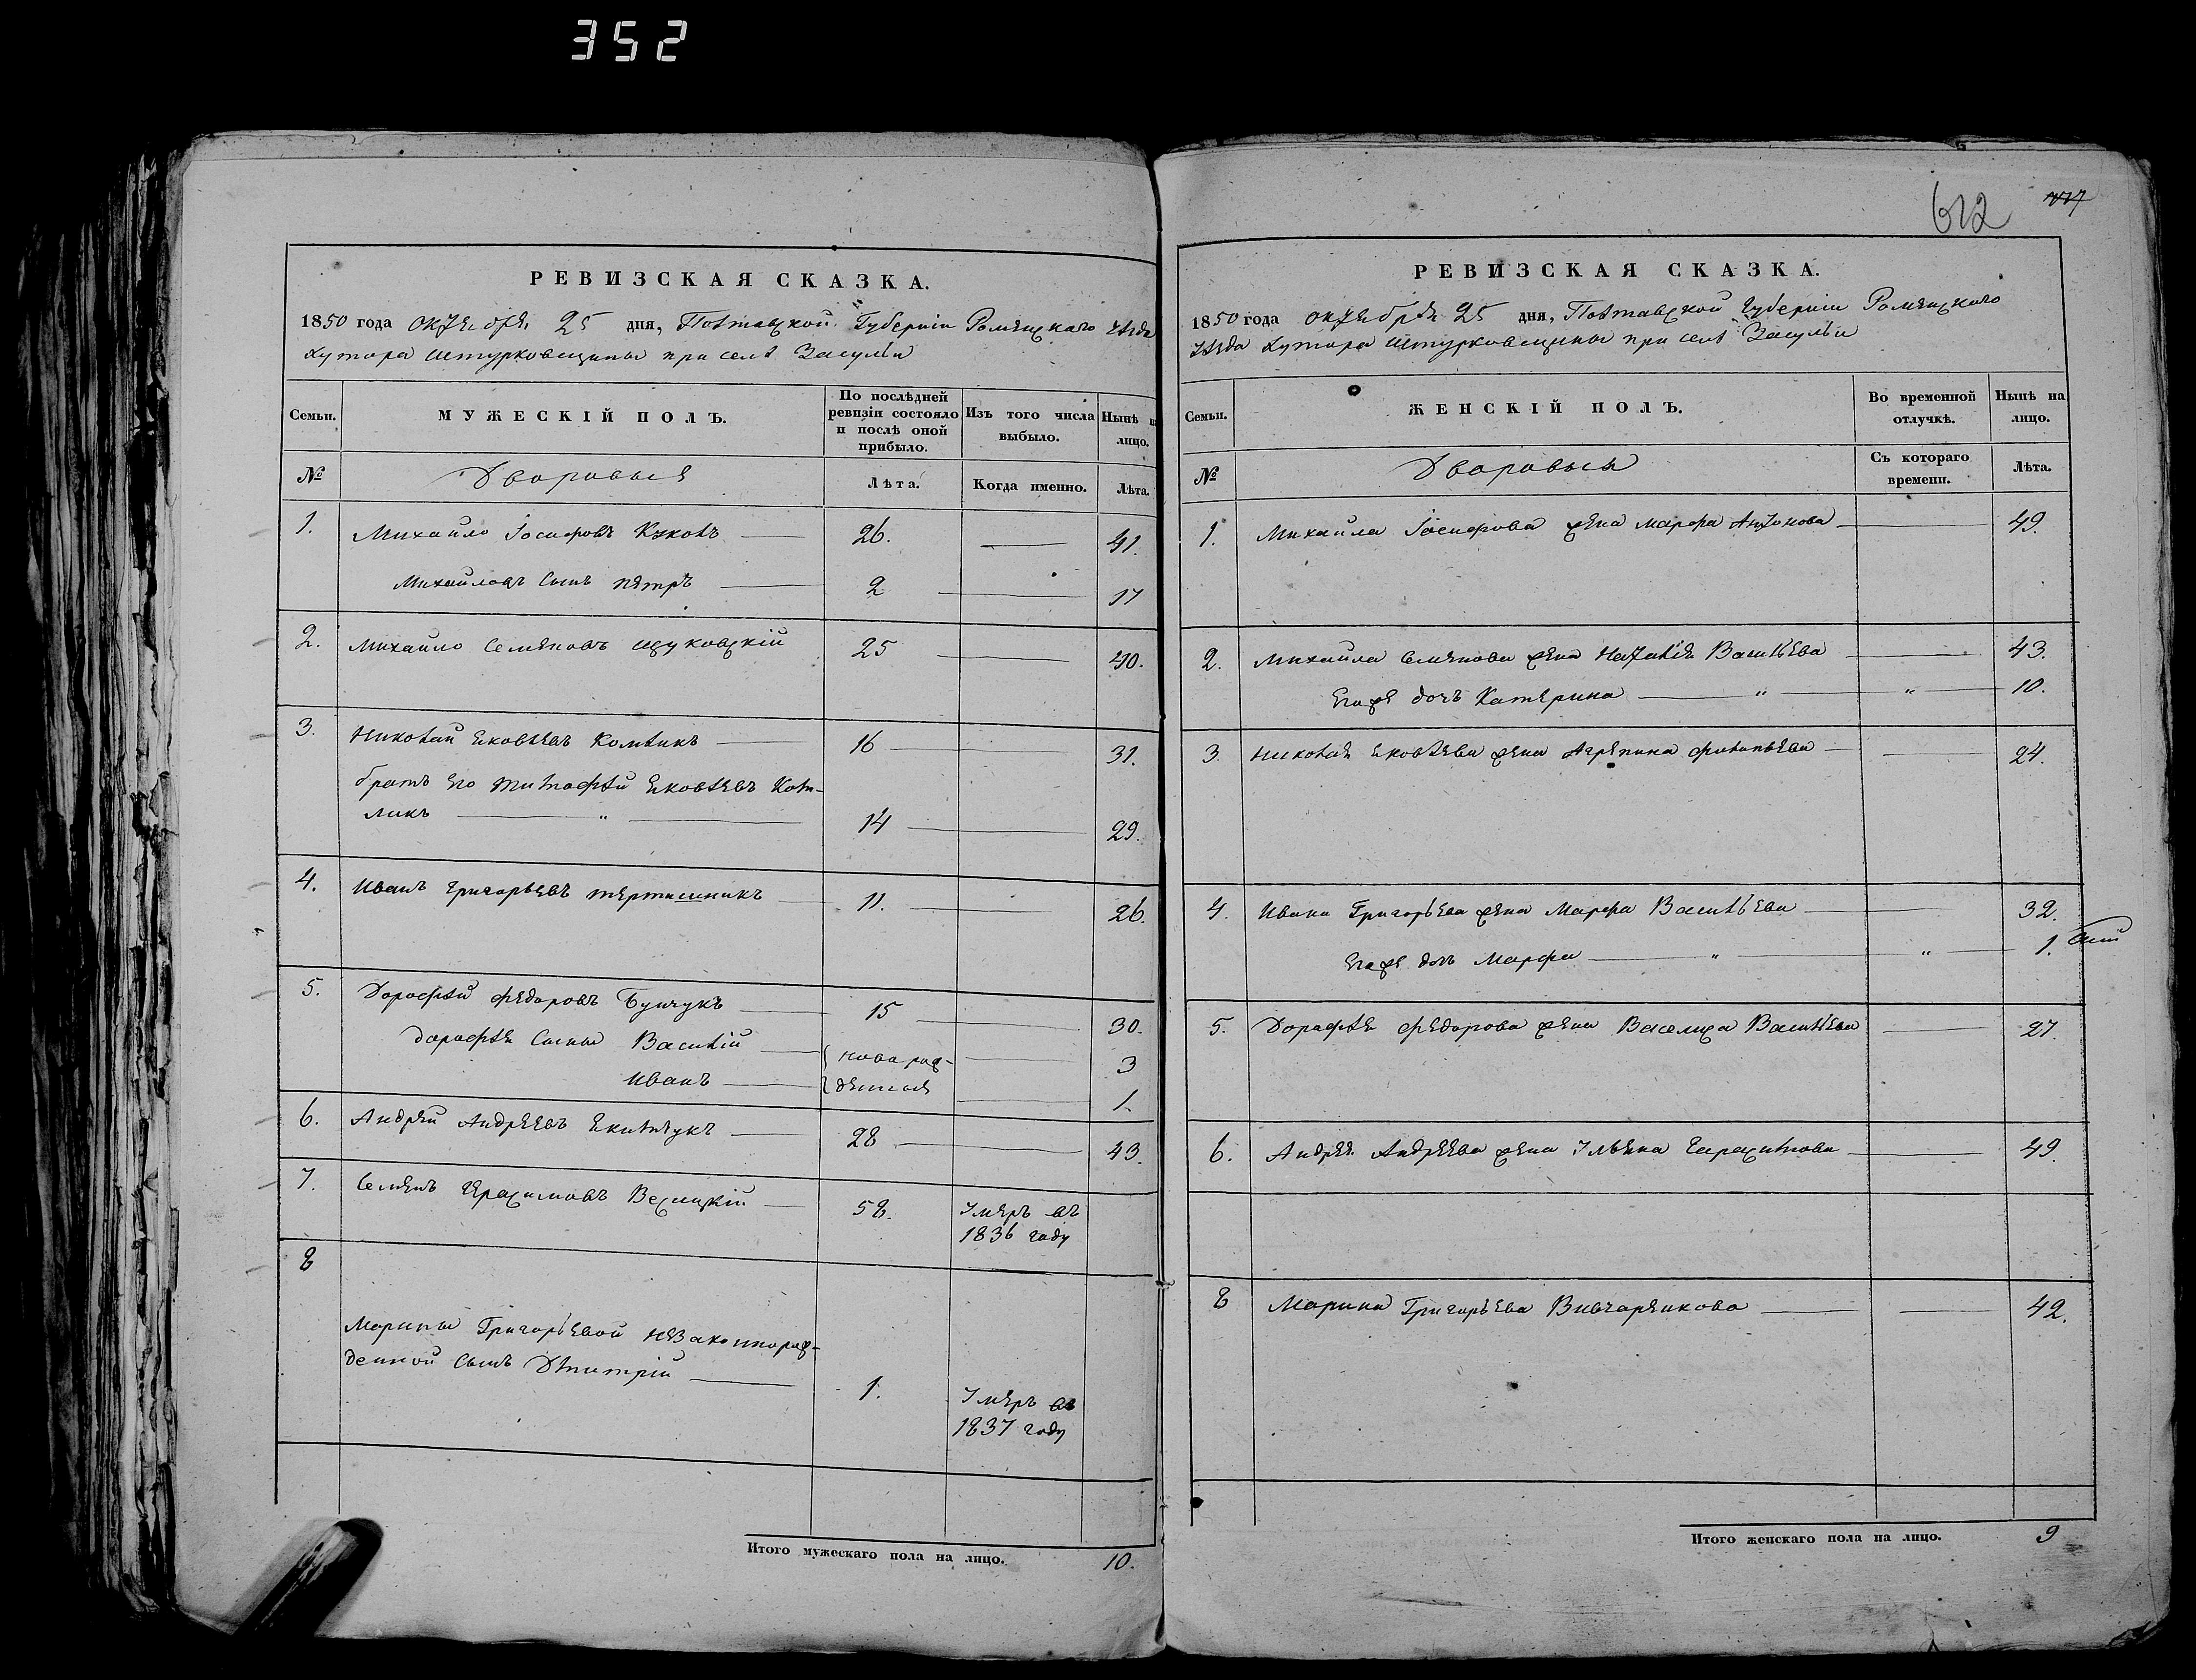 352
612
РЕВИЗСКАЯ СКАЗКА.
1850 года октября 25 дня, Полтавской Губерніи Роменскаго уѣзда
хутора Штурковщины при селѣ Засульи
Семьи.
МУЖЕСКІЙ ПОЛЪ.
По послѣдней ревизіи состояло и послѣ оной прибыло.
Изъ того числа выбыло.
Нынѣ на лицо.
№
Дворовыя
Лѣта.
Когда именно.
Лѣта.
1. Михайло Іосифовъ 26. 41.
Михайловъ сынъ Петръ 2 17
2. Михайло Семеновъ Щуковскій 25 40.
3. Николай Яковлевъ Комликъ 16 31.
братъ его Тимофѣй Яковлевъ Ком-
ликъ „ 14 29.
4. Иванъ Григорьевъ Тертишникъ 11. 26.
5. Дорофѣй Федоровъ Бунчукъ 15 30.
Дорофѣя сыны Василій новорож- 3
Иванъ денныя 1.
6. Андрей Андреевъ 28 43.
7. Семенъ Герасимовъ 58. Умеръ въ
1836 году
8
Марины Григорьевой незаконорож-
денной сынъ Дмитрій 1. Умеръ въ
1837 году
Итого мужескаго пола на лицо. 10.
РЕВИЗСКАЯ СКАЗКА.
1850 года октября 25 дня, Полтавской Губерніи Роменскаго
уѣзда хутора Штурковщины при селѣ Засульи
Семьи.
ЖЕНСКІЙ ПОЛЪ.
Во временной отлучкѣ.
Нынѣ на лицо.
№
Дворовыя
Съ котораго времени.
Лѣта.
1. Михайла Іосифова жена Марфа Антонова 49.
2. Михайла Семенова жена Наталія Васильева 43.
Егоже дочь Катерина „ „ 10.
3. Николая Яковлева жена Агрепина Филипьева 24.
4. Ивана Григорьева жена Марфа Васильева 32.
Егоже дочь Марфа „ „ 1.
5. Дорофѣя Федорова жена Василиса Васильева 27.
6. Андрея Андреева жена Ульяна Гарасимова 49.
8 Марина Григорьева Вивчаренкова 42.
Итого женскаго пола на лицо. 9